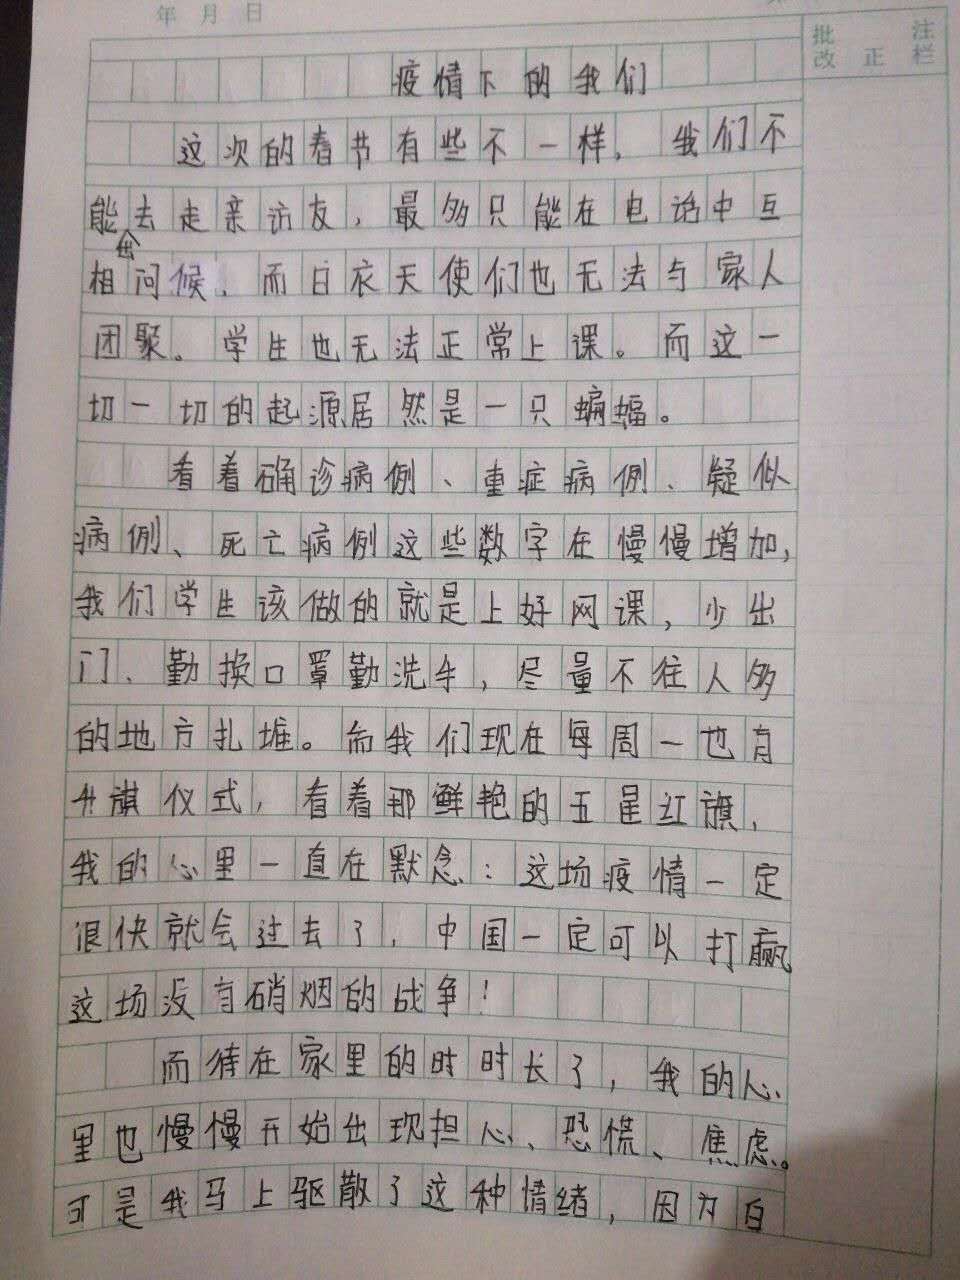 年 月 日
批 注
改 正 栏
疫情下的我们
这次的春节有些不一样，我们不
能去走亲访友，最多只能在电话中互
相问候、而白衣天使们也无法与家人
团聚。学生也无法正常上课。而这一
切一切的起源居然是一只蝙蝠。
看着确诊病例、重症病例、疑似
病例、死亡病例这些数字在慢慢增加，
我们学生该做的就是上好网课，少出
门、勤换口罩勤洗手，尽量不往人多
的地方扎堆。而我们现在每周一也有
升旗仪式，看着那鲜艳的五星红旗，
我的心里一直在默念：这场疫情一定
很快就会过去了，中国一定可以打赢
这场没有硝烟的战争！
而待在家里的时时长了，我的心
里也慢慢开始出现担心、恐慌、焦虑。
可是我马上驱散了这种情绪，因为白